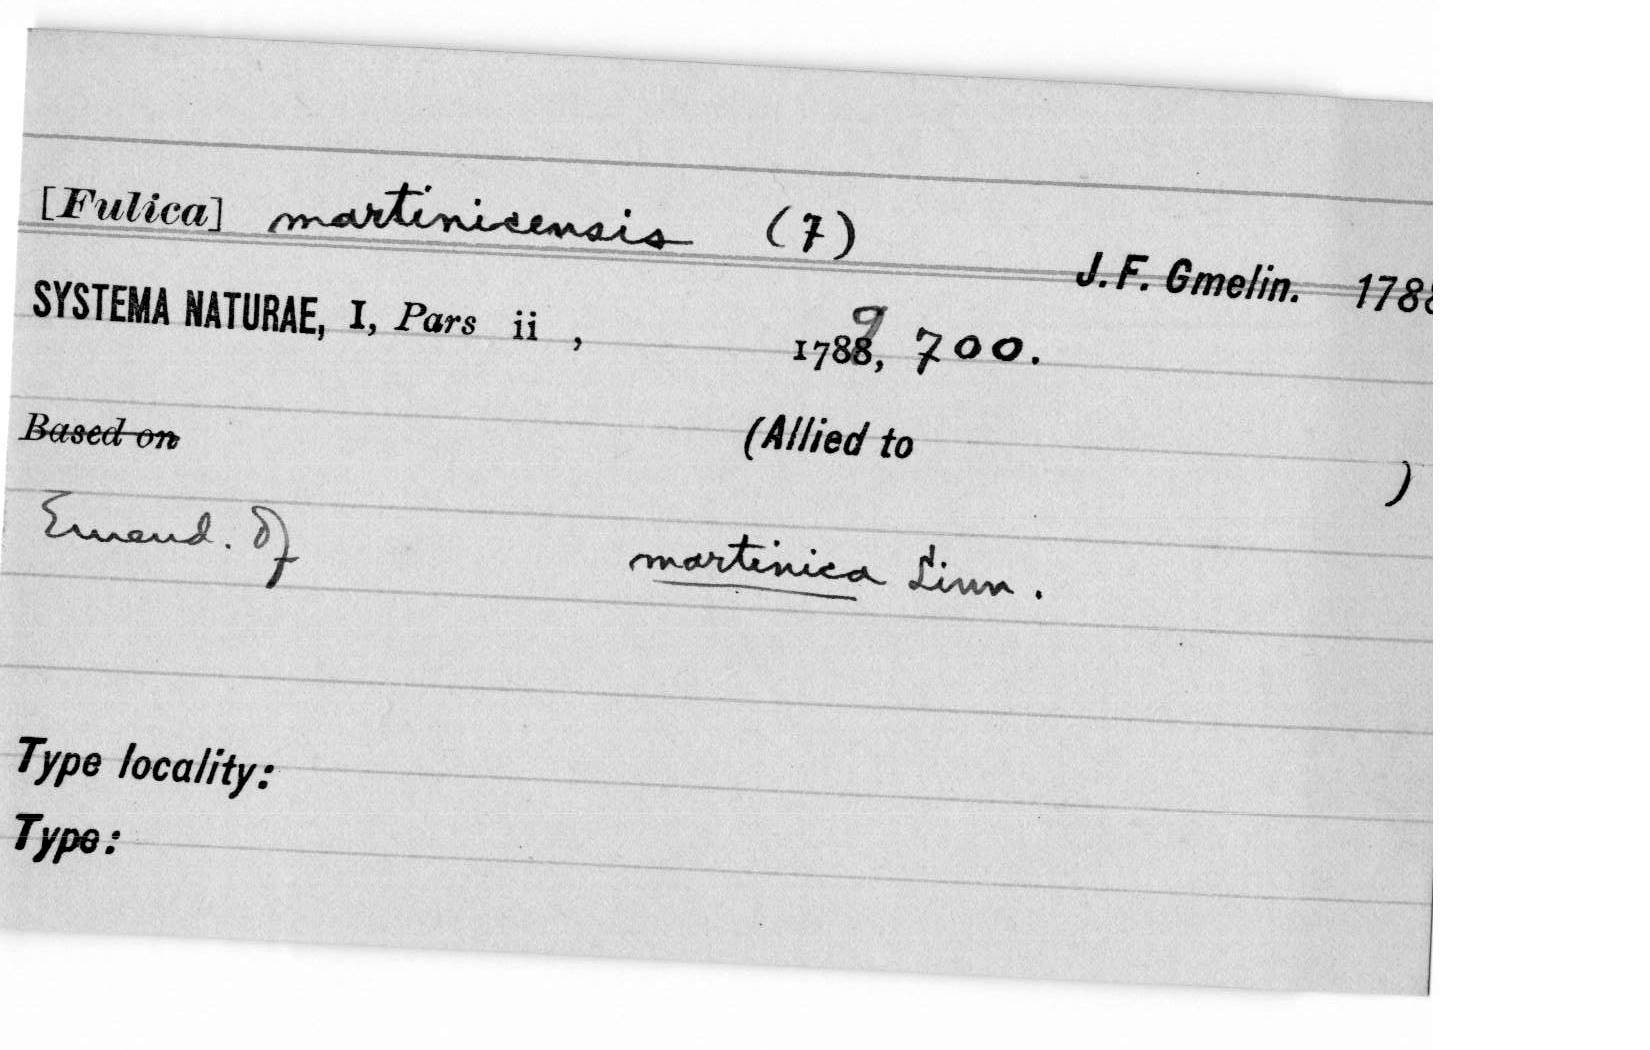 [Fulica] martinicensis (7)
J. F. Gmelin. 1788
SYSTEMA NATURAE, I, Pars ii , 1789, 700.
Based on (Allied to )
Emend. of martinica Linn.
Type locality:
Type: